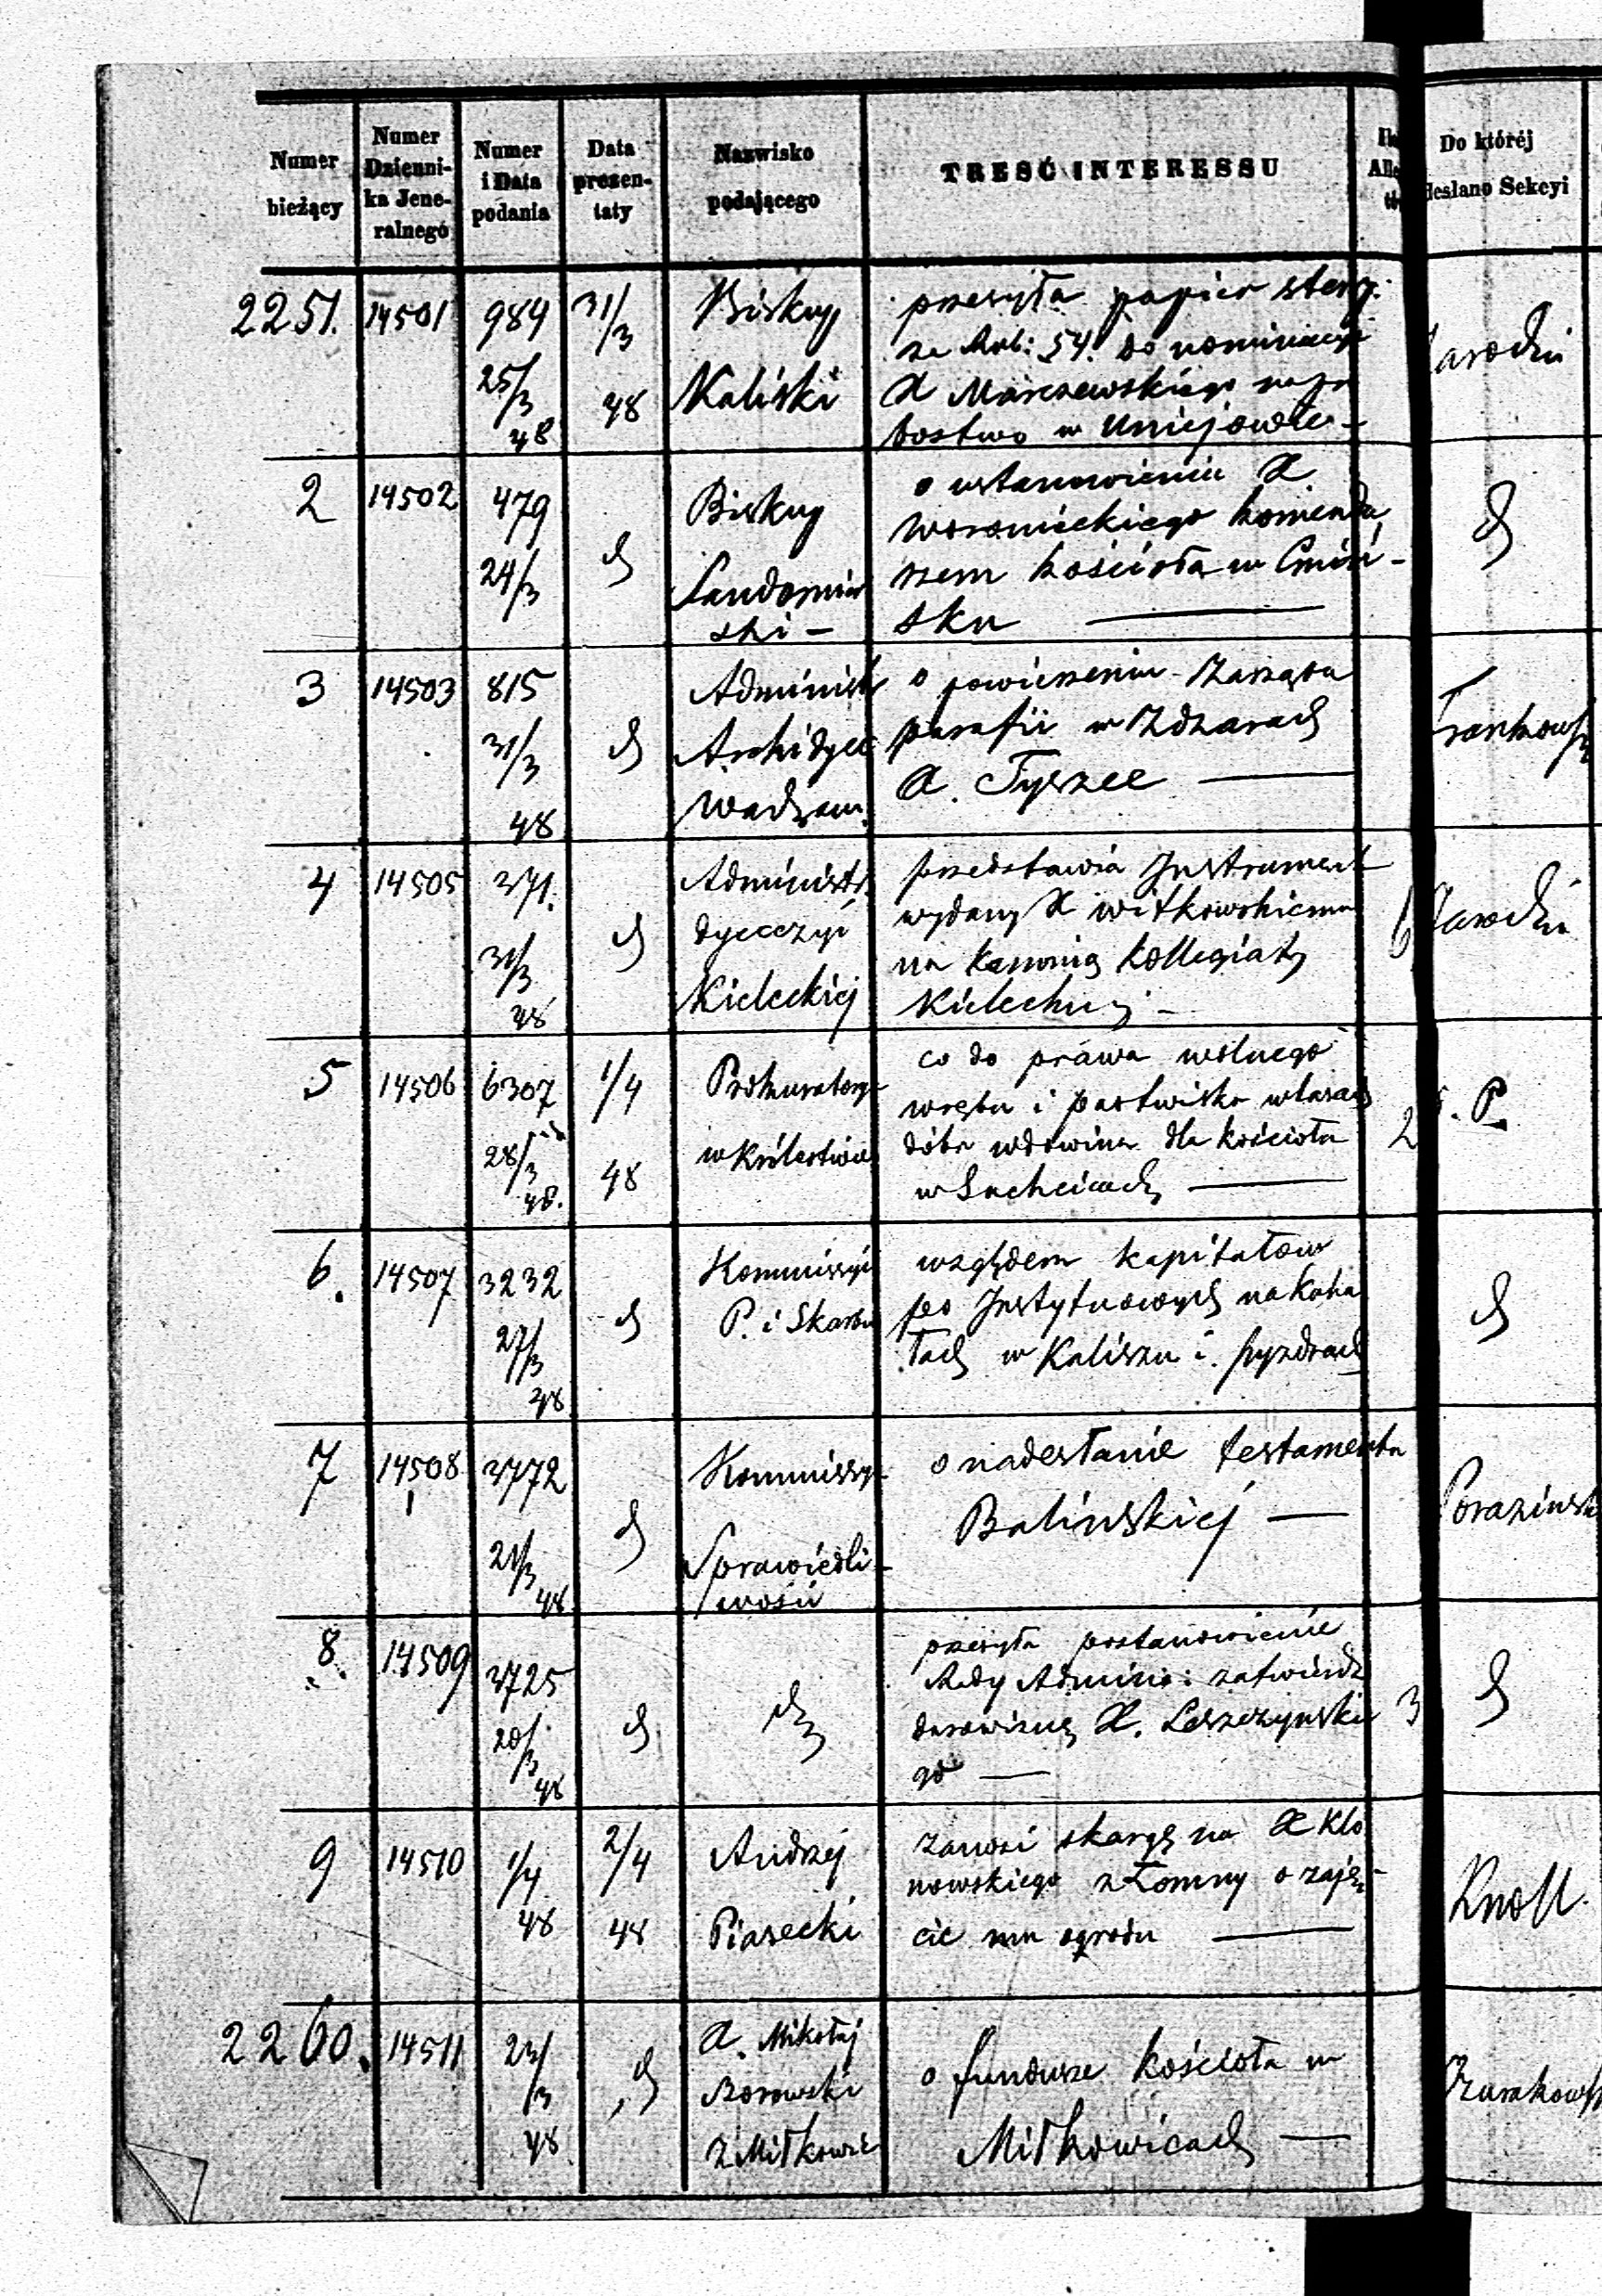 Numer bieżący
Numer Dzienni-ka Jene-ralnego
Numer i Data podania
Data prezen-taty
Nazwisko podającego
TREŚĆ INTERESSU
Do któréj
desłano Sekcyi
2251. 14501 984 25/3 48 31/3 48
Biskup
Kaliski
przesyła papier stemp:
za Rub: 54. do nominacyi
X Marczewskiego na pro
bostwo w Uniejowie –
2 14502 479 24/3 d
Biskup
Sandomir
ski –
o ustanowieniu X
Woronieckiego komenda
rzem kościoła w Cmiń-
sku —
d
3 14503 815 31/3 48 d
Administr
Archidyec
Warszaw.
o powierzeniu Zarządu
parafii w Zdżarach
X. Tyszce —
4 14505 371. 31/3 48 d
Administr.
dyecezyi
Kieleckiej
przedstawia Instrument
wydany X Witkowskiemu
na kanonią Kollegiaty
Kieleckiej –
6
5 14506 6307 28/3 48. 1/4 48
Prokuratorya
w Królestwie
co do prawa wolnego
wrębu i pastwiska w lasach
dóbr Wdowina dla kościoła
w Suchcicach —
2
P.
6. 14507 3232 27/3 48 d
Kommissyi
P. i Skarbu
względem kapitałów
po Instytutowych na Kaha
łach w Kaliszu i Pyzdrach
d
7 14508 3772 21/3 48 d
Kommissy-
Sprawiedli-
wości
o nadesłanie testamentu
Balińskiej —
8. 14509 3725 20/3 48 d
przesyła postanowienie
Rady Adminis: zatwierdz
darowiznę X. Leszczyńskie
go —
3
d
9 14510 1/4 48 2/4 48
Andrzej
Piasecki
zanosi skargę na X Kło
nowskiego z Łomny o zaję-
cie mu ogrodu —
Knoll.
2260. 14511 23/3 48 d
X. Mikołaj
Borowski
z Miłkowic
o fundusze kościoła w
Miłkowicach —